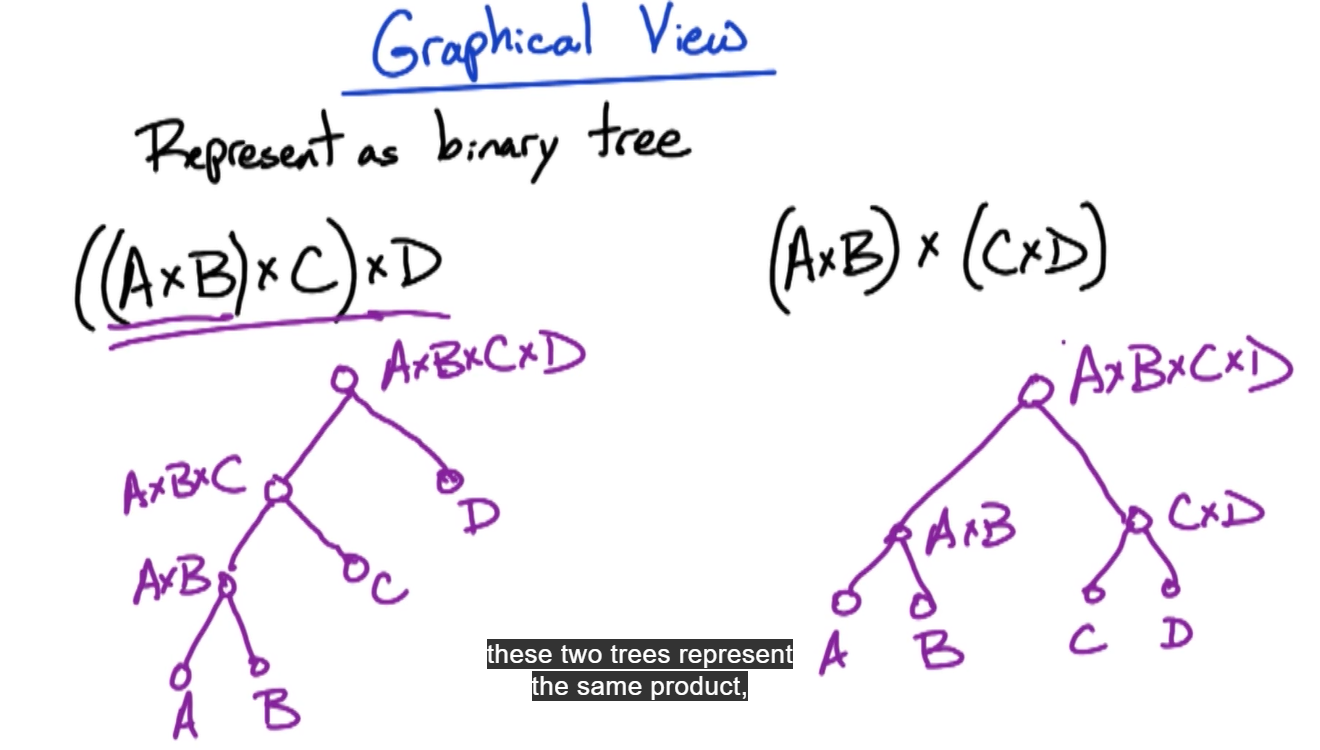 Graphical View
Represent as binary tree
((A×B)×C)×D
(A×B) × (C×D)
A×B×C×D
A×B×C
D
A×B
C
A
B
A×B×C×D
A×B
C×D
A
B
C
D
these two trees represent
the same product,